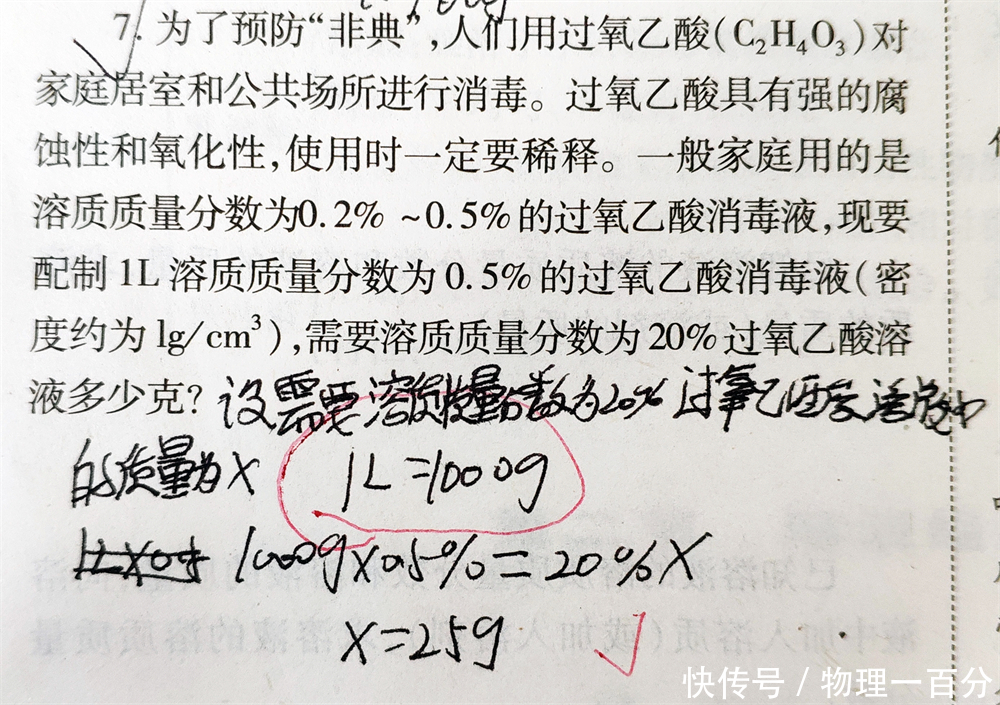 7. 为了预防“非典”,人们用过氧乙酸(C₂H₄O₃)对
家庭居室和公共场所进行消毒。过氧乙酸具有强的腐
蚀性和氧化性,使用时一定要稀释。一般家庭用的是
溶质质量分数为0.2% ~0.5%的过氧乙酸消毒液,现要
配制 1L 溶质质量分数为 0.5%的过氧乙酸消毒液(密
度约为 lg/cm³),需要溶质质量分数为 20%过氧乙酸溶
液多少克?
设需要溶质质量分数为20%过氧乙酸溶液
的质量为X
1L=1000g
1000g×0.5%=20%X
X=25g
快传号 / 物理一百分